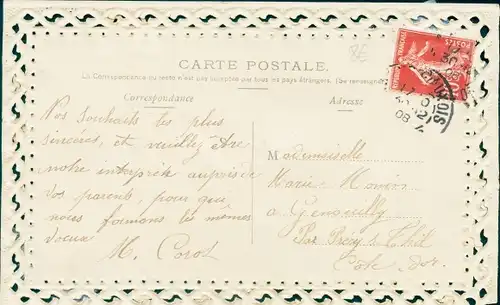 8E
CARTE POSTALE.
La Correspondance au recto n'est pas acceptée par tous les pays étrangers. (Se renseigner
Correspondance
Adresse
POSTES
08
Nos souhaits les plus
sincères, et veuillez être
notre interprète auprès de
vos parents, pour qui
nous formons les mêmes
vœux
M. Corot
Mademoiselle
Marie
à Genouilly
Par Précy s. Thil
Côte d'or